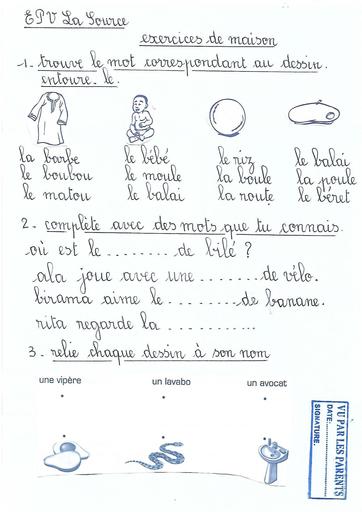 EPV La Source
exercices de maison
1. trouve le mot correspondant au dessin.
entoure-le.
la barbe le bébé le riz le balai
le boubou le moule la boule la poule
le matou le balai la route le béret
2. complète avec des mots que tu connais.
où est le ........ de bilé ?
ala joue avec une ....... de vélo.
birama aime le ........ de banane.
rita regarde la ..........
3. relie chaque dessin à son nom
une vipère un lavabo un avocat
VU PAR LES PARENTS
DATE:
SIGNATURE.